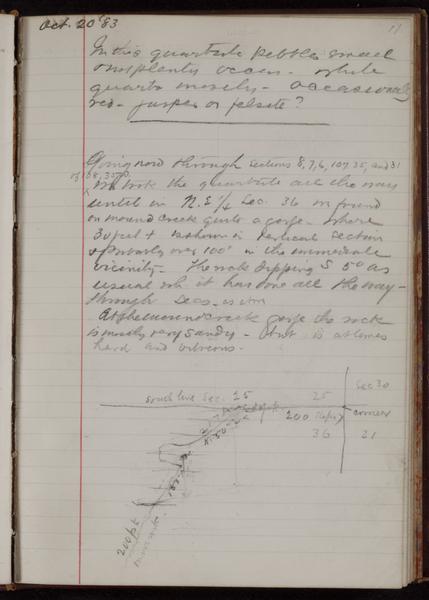 Oct. 20 '83
11
In this quartzite pebbles small
and plenty occur - white
quartz mostly - occasionally
red - jasper or felsite?
Going now through sections 8, 7, 6, 107.35, and 31
of 108, 35
we took the quartzite all the way
until in N.E ¼ Sec. 36 we found
on mound creek quite a gorge - where
30 feet + is shown in vertical section
& probably over 100' in the immediate
vicinity - The rock dipping S 5° as
usual wh it has done all the way -
through secs.
At the mound creek gorge the rock
is mostly very sandy - but is at times
hard and vitreous.
south line Sec. 25
25
Sec 30
200 steps
corners
36
31
200 ft